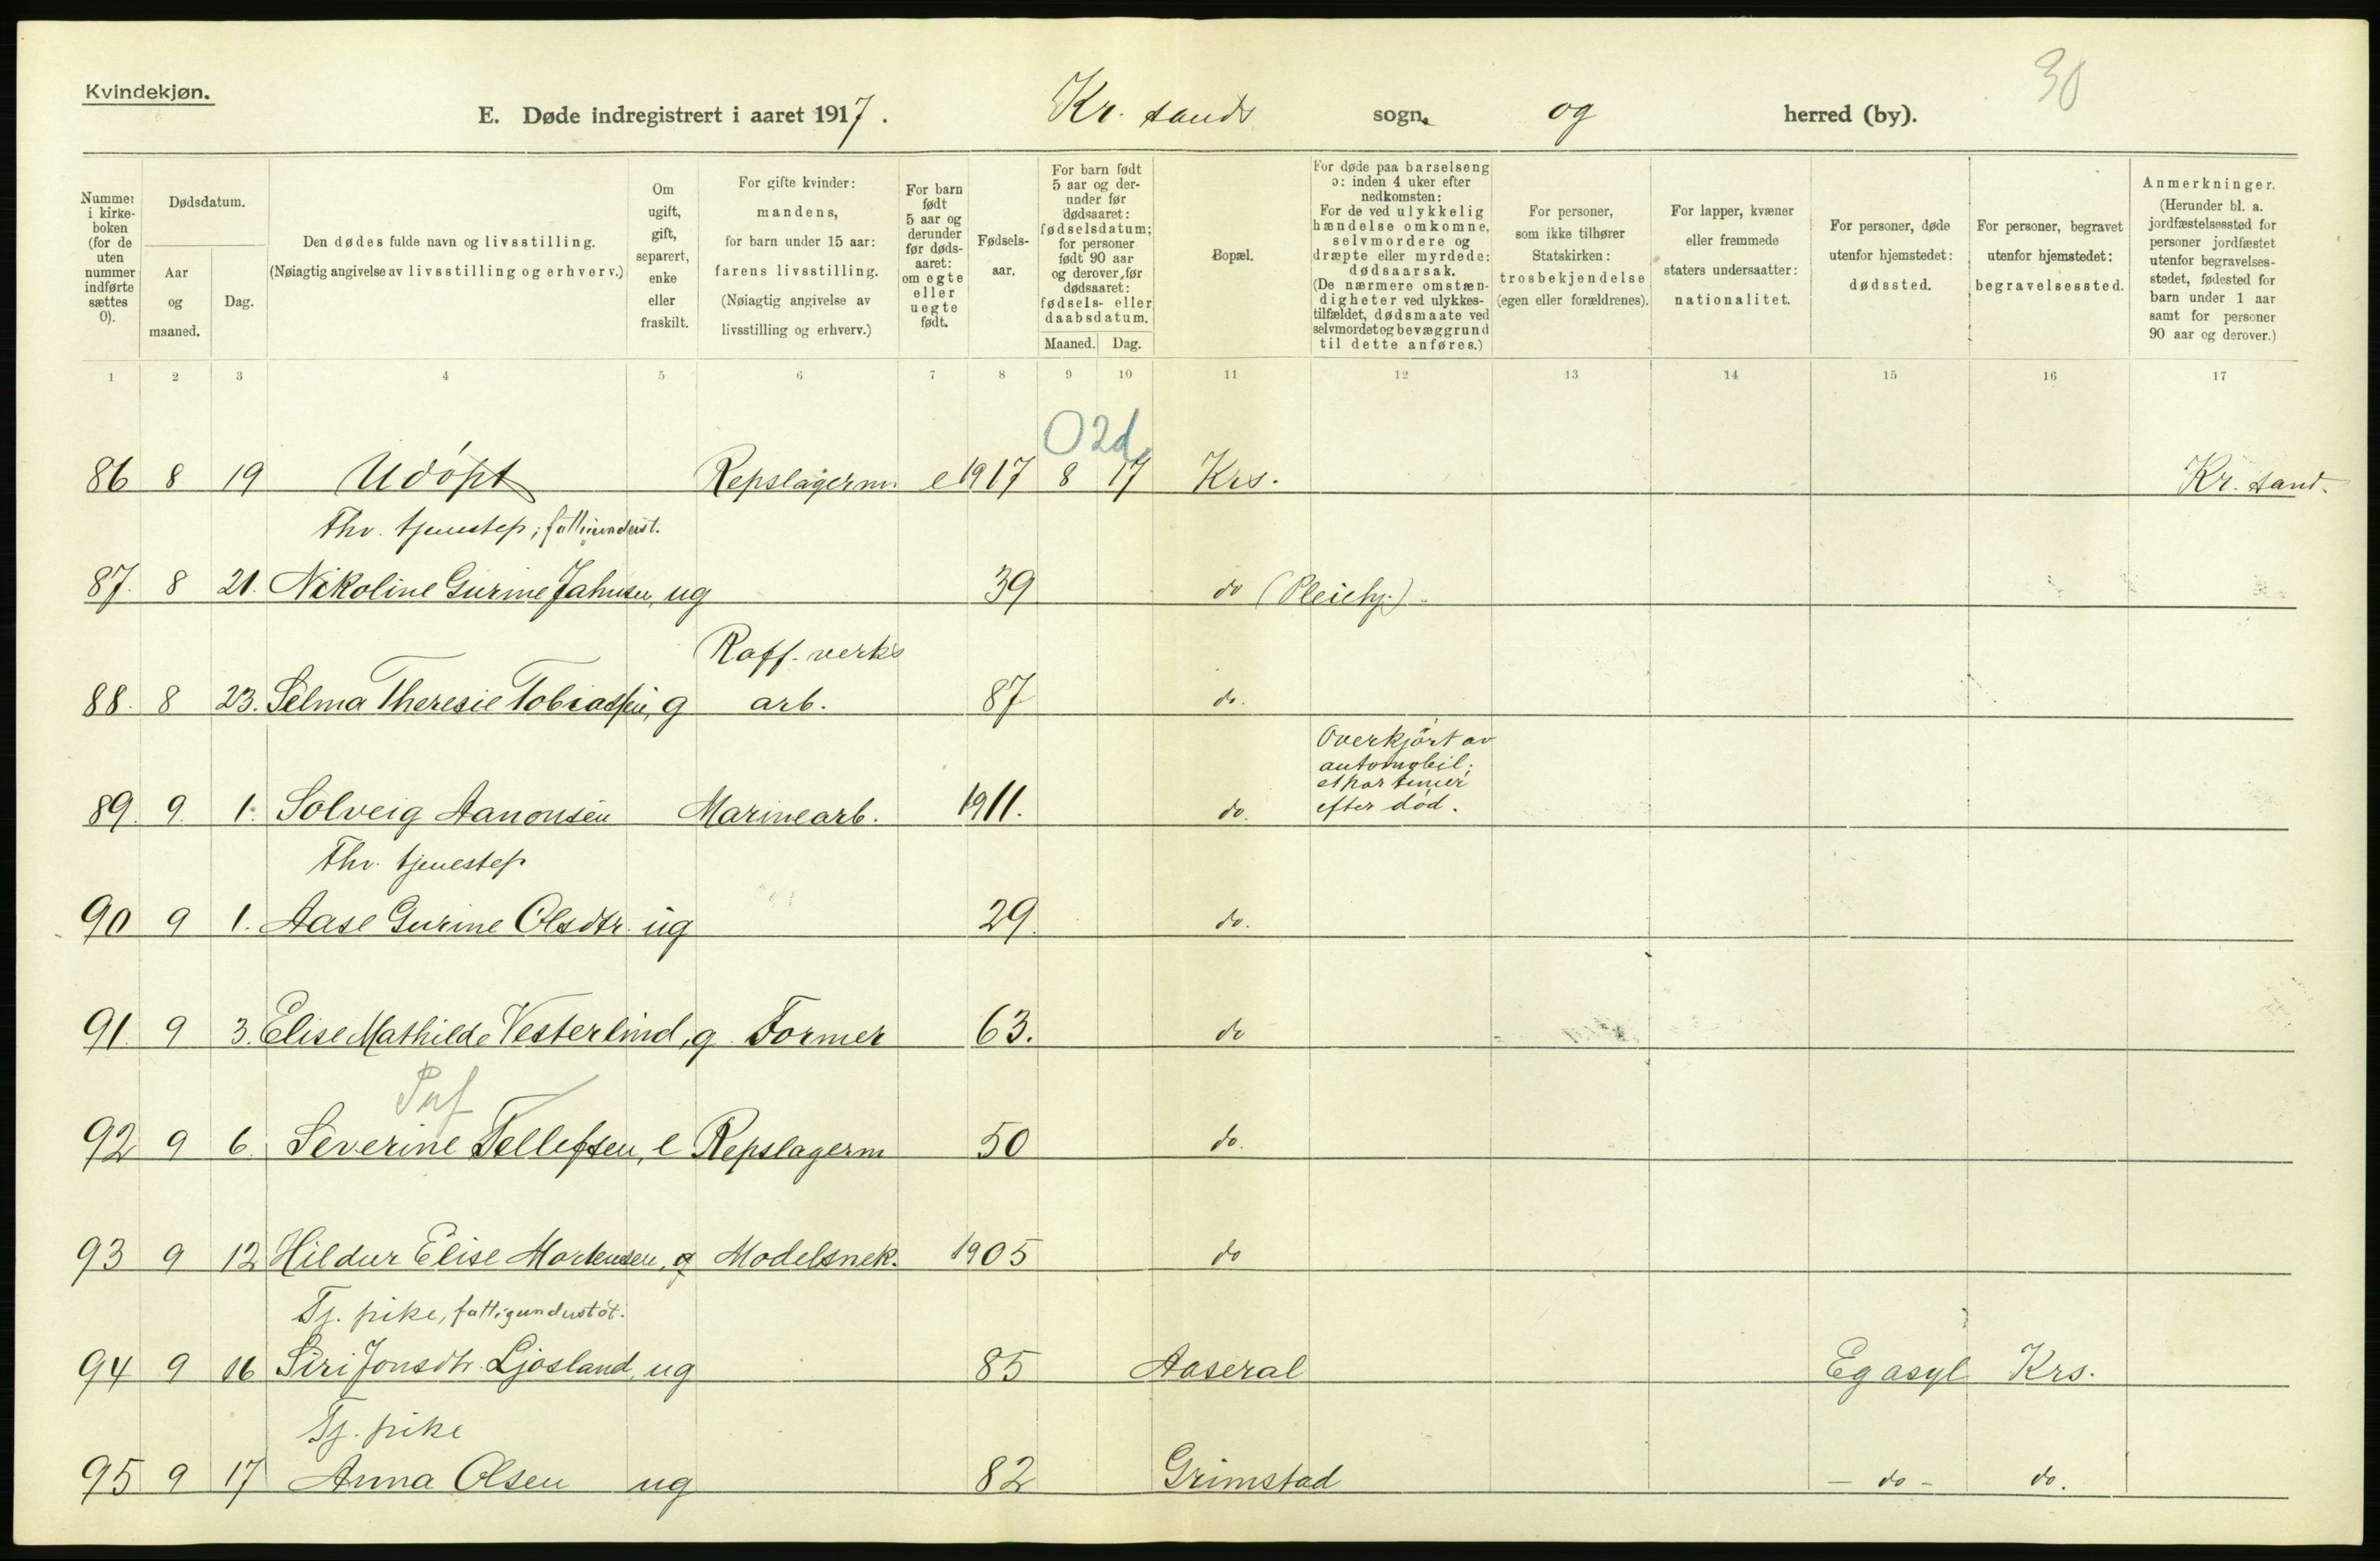 Kvindekjøn.
30
E. Døde indregistrert i aaret 1917. Kr. sands sogn. og herred (by).
Nummer i kirkeboken (for de uten nummer indførte sættes 0).
Dødsdatum.
Aar og maaned.
Dag.
Den dødes fulde navn og livsstilling.
(Nøiagtig angivelse av livsstilling og erhverv.)
Om ugift, gift, separert, enke eller fraskilt.
For gifte kvinder: mandens, for barn under 15 aar: farens livsstilling. (Nøiagtig angivelse av livsstilling og erhverv.)
For barn født 5 aar og derunder før dødsaaret: om egte eller uegte født.
Fødselsaar.
For barn født 5 aar og derunder før dødsaaret: fødselsdatum; for personer født 90 aar og derover før dødsaaret: fødsels- eller daabsdatum.
Maaned. Dag.
Bopæl.
For døde paa barselseng ɔ: inden 4 uker efter nedkomsten: For de ved ulykkelig hændelse omkomne, selvmordere og dræpte eller myrdede: dødsaarsak. (De nærmere omstændigheter ved ulykkestilfældet, dødsmaate ved selvmordet og bevæggrund til dette anføres.)
For personer, som ikke tilhører Statskirken: trosbekjendelse (egen eller forældrenes).
For lapper, kvæner eller fremmede staters undersaatter: nationalitet.
For personer, døde utenfor hjemstedet: dødssted.
For personer, begravet utenfor hjemstedet: begravelsessted.
Anmerkninger. (Herunder bl. a. jordfæstelsessted for personer jordfæstet utenfor begravelsesstedet, fødested for barn under 1 aar samt for personer 90 aar og derover.)
1 2 3 4 5 6 7 8 9 10 11 12 13 14 15 16 17
O 2d
86 8 19 Udöpt Repslagerm. e 1917 8 17 Krs. Kr. sand.
Fhv. tjenestep; fattigunderst.
87. 8 21. Nikoline Gurine Jahnsen, ug 39 do (Pleiehj.)
Raff. verks
88. 8 23. Selma Theresie Tobiassen, g arb. 87 do.
Overkjört av
automobil;
et par timer
89. 9. 1. Solveig Aanonsen Marinearb. 1911. do. efter död.
Fhv. tjenestep
90 9 1. Aase Gurine Olsdtr. ug 29. do.
91. 9 3. Elise Mathilde Vesterlind, g Former 63. do
92 9 6. Severine Tellefsen, e Repslagerm 50 do.
93 9 12 Hildur Elise Mortensen, g Modelsnek. 1905 do
Tj. pike, fattigunderstöt.
94 9 16 Siri Jonsdtr. Ljosland, ug 85 Aaseral Eg asyl Krs.
Tj. pike
95 9 17 Anna Olsen ug 82 Grimstad – do – do.